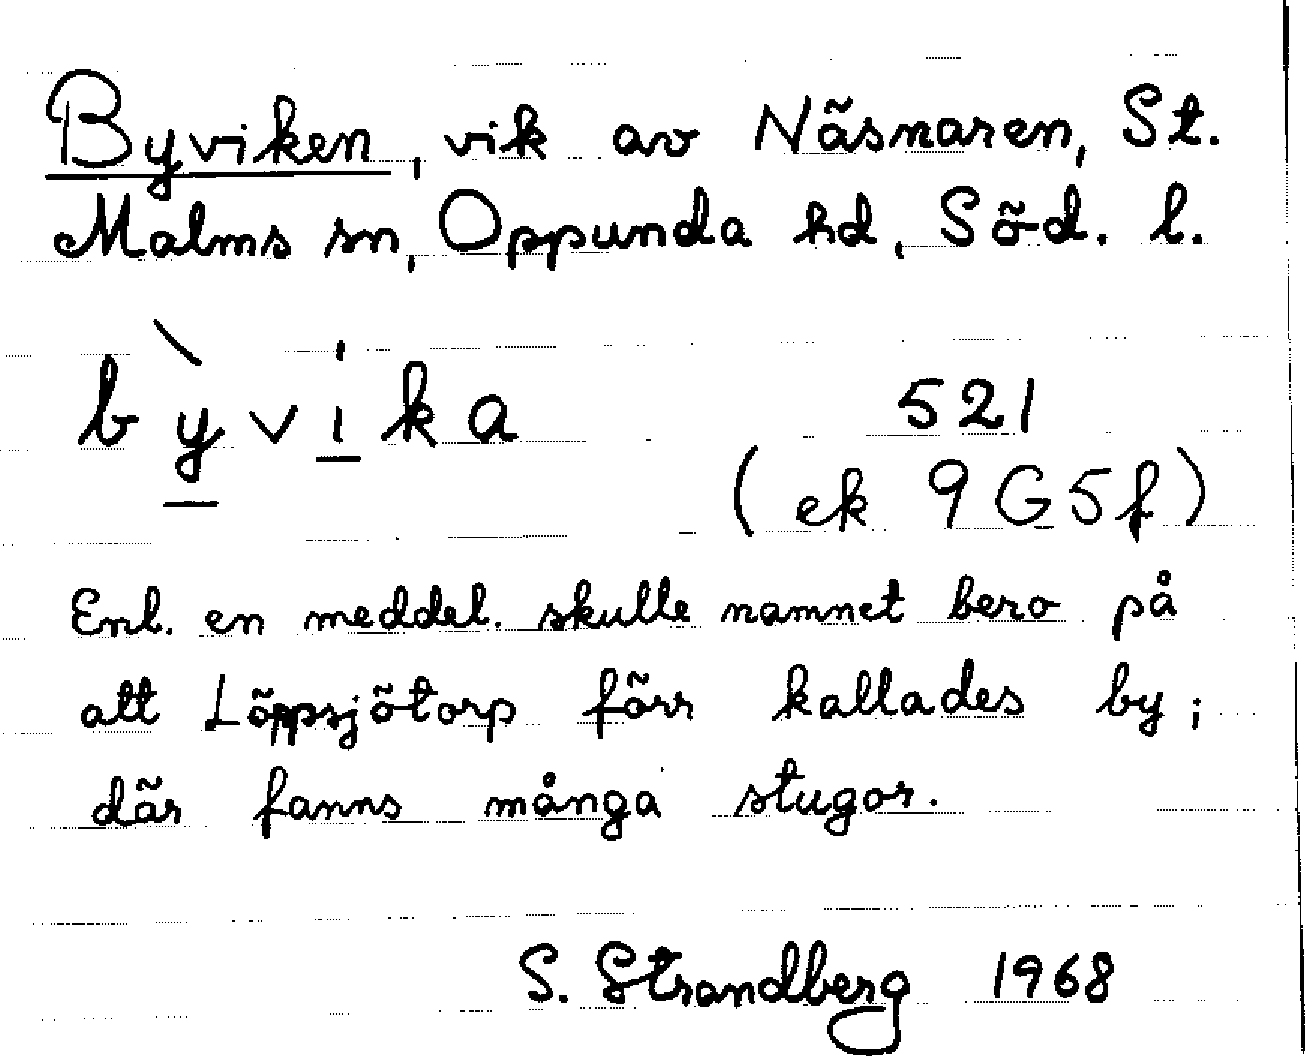 Byviken, vik av Näsnaren, St.
Malms sn, Oppunda hd, Söd. l.
bỳvika 521
(ek 9G5f)
Enl. en meddel. skulle namnet bero på
att Löppsjötorp förr kallades by;
där fanns många stugor.
S. Strandberg 1968